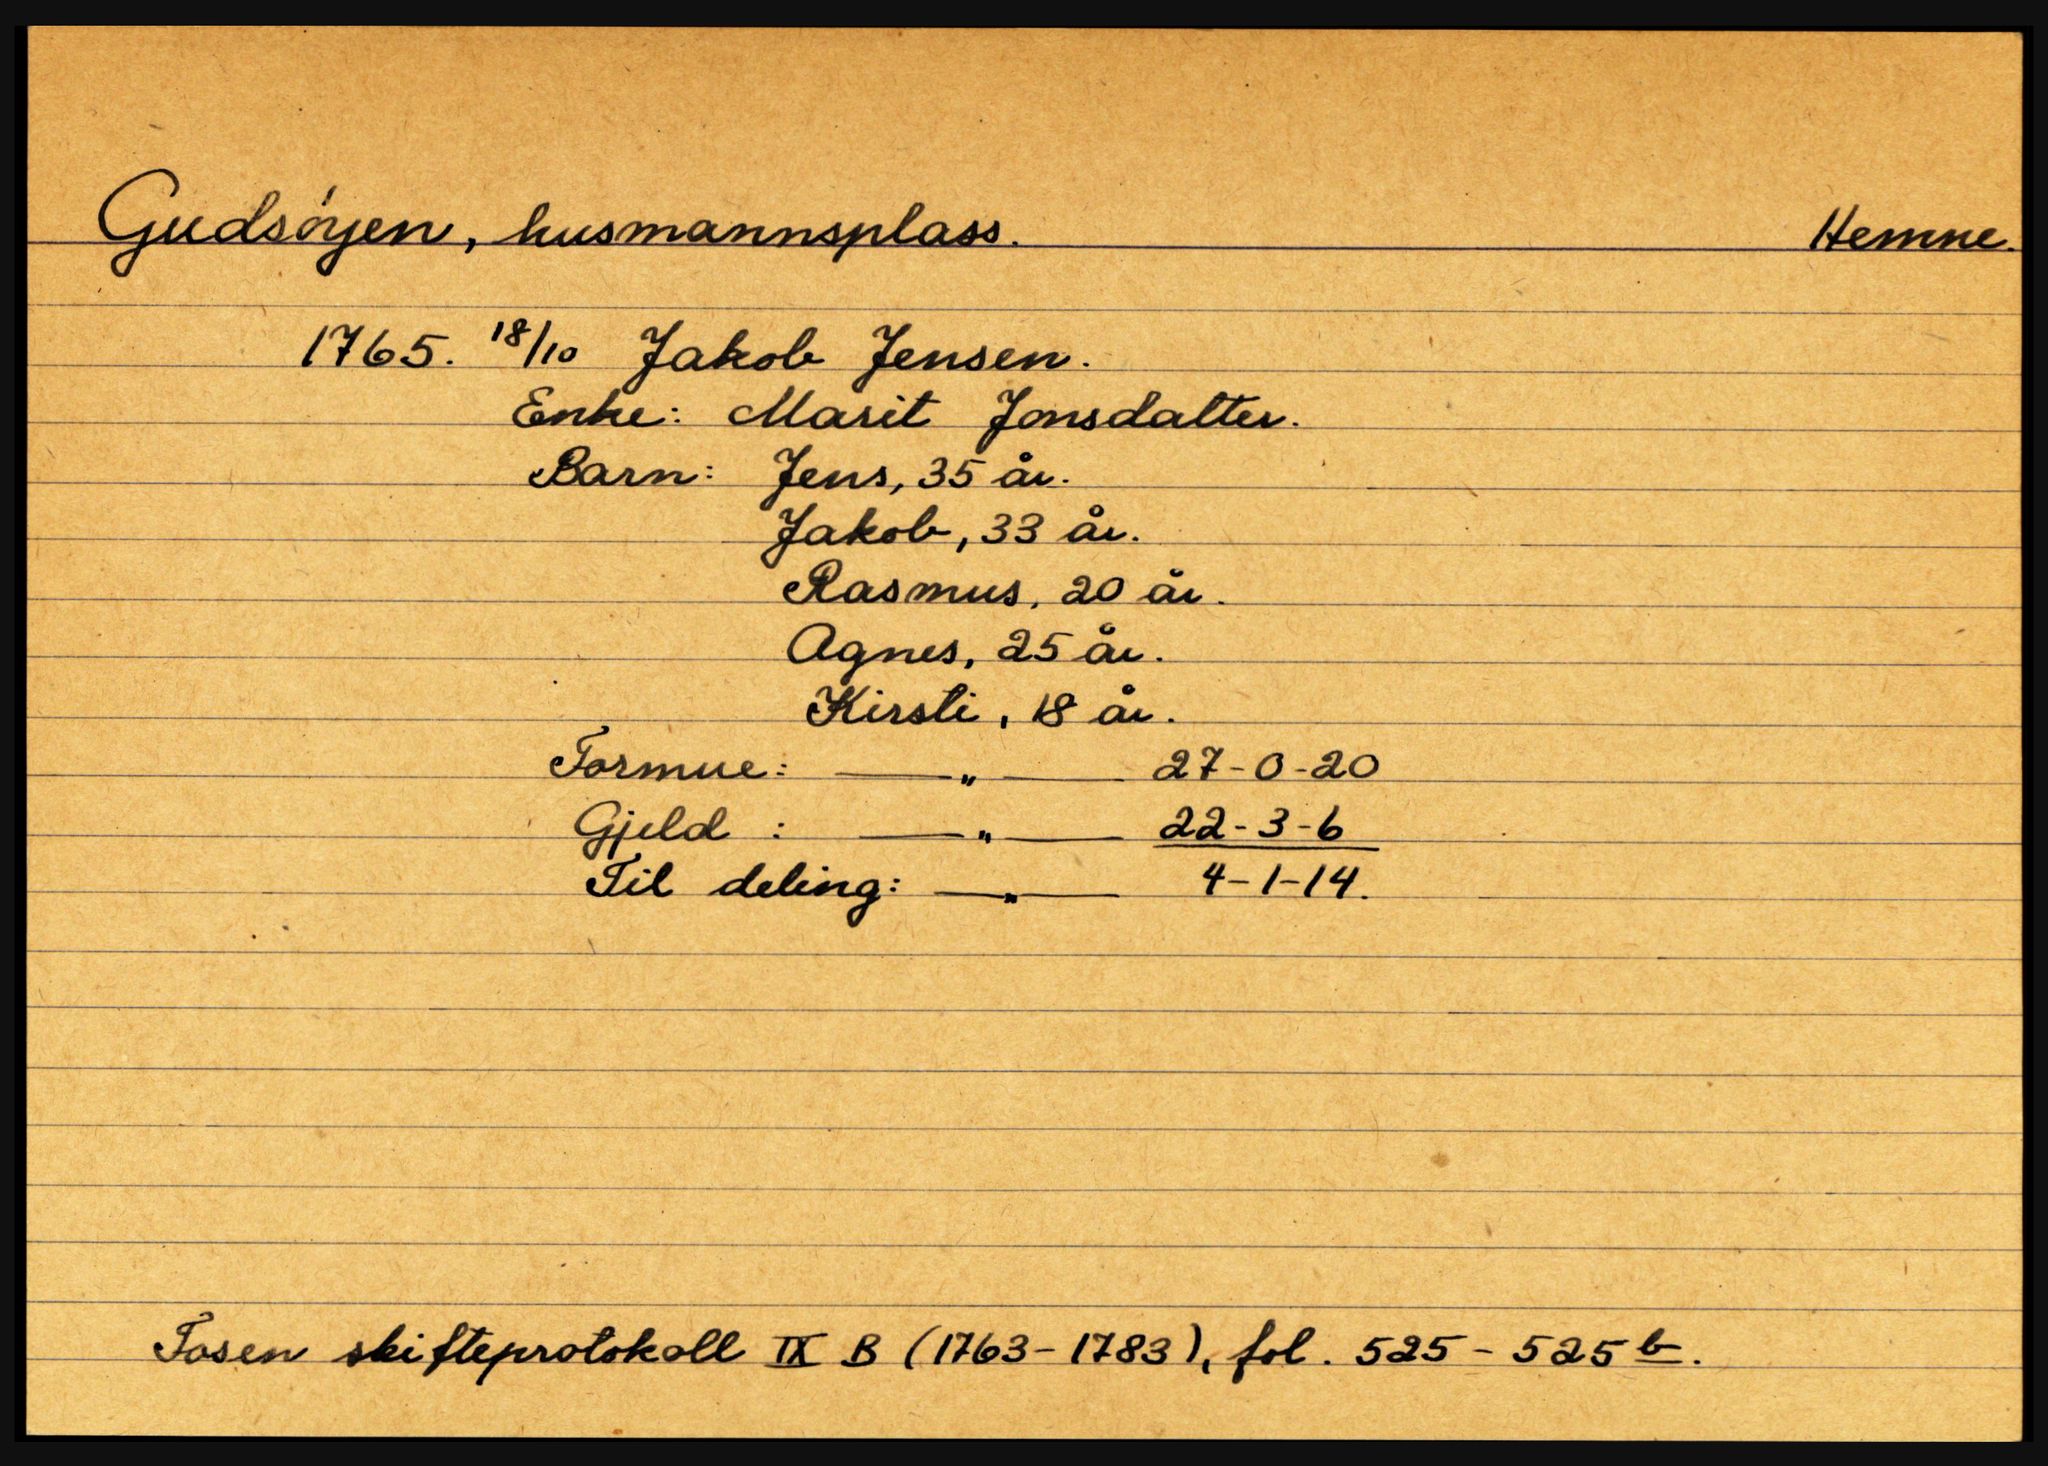 Gudsøyen, husmannsplass. Hemne.
1765. 18/10 Jakob Jensen.
Enke: Marit Jonsdatter.
Barn: Jens, 35 år.
Jakob, 33 år.
Rasmus, 20 år.
Agnes, 25 år.
Kirsti, 18 år.
Formue: —„— 27-0-20
Gjeld : —„— 22-3-6
Til deling: —„— 4-1-14.
Fosen skifteprotokoll IX B (1763-1783), fol. 525-525b.